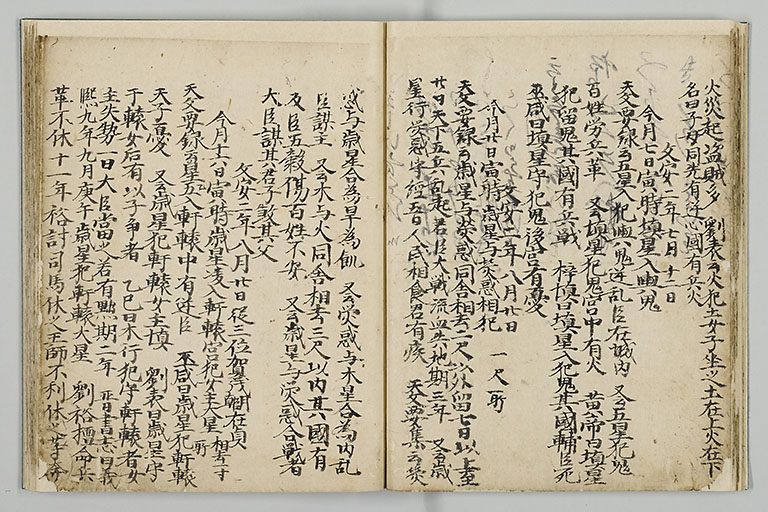 火災起盗賊多 劉表云火犯土女子坐之土在上火在下
名曰子母同光有逆心國有兵火
文安二年七月十二日
今月七日當時填星入輿鬼
天文要録云五星入犯輿鬼逆乱臣在城内 又云五星犯鬼
百姓労兵革 又云填星犯鬼宮中有火 黄帝曰填星
犯留鬼其國有兵戦 梓慎曰填星入犯鬼其國輔臣死
巫咸曰填星守犯鬼後宮有憂
文安二年八月廿日
今月廿日當時歳星与熒惑相犯 一尺所
天文要録云歳星与熒惑同舎相去二尺以外留七日以上至
廿日天下五兵而起君臣大戦流血共地期三年 又云歳
星行熒惑守経五日人民相食君有疾 天文要集云熒
惑与歳星合為旱為飢 又云熒惑与木星合為内乱
臣謀主 又云木与火同舎相去三尺以内其國有
反臣五穀傷百姓不安 又云歳星与熒惑合戦者
大臣謀其君子殺其父
文安二年八月廿日從三位賀茂朝臣在貞
今月十六日當時歳星凌入軒轅宮犯女主大星 相去一寸所
天文要録云五星入軒轅中有逆臣 巫咸曰歳星犯軒轅
天子憂 又云歳星犯軒轅女主填 劉表曰歳星守
于轅女后有以子争者 乙巳曰木行犯守軒轅者女
主失勢一曰大臣當之若有黜期二年 晋書志曰義
熈九年九月庚午歳星犯軒轅大星 劉裕擅命兵
革不休十一年裕討司馬休之王師不利休之等奔